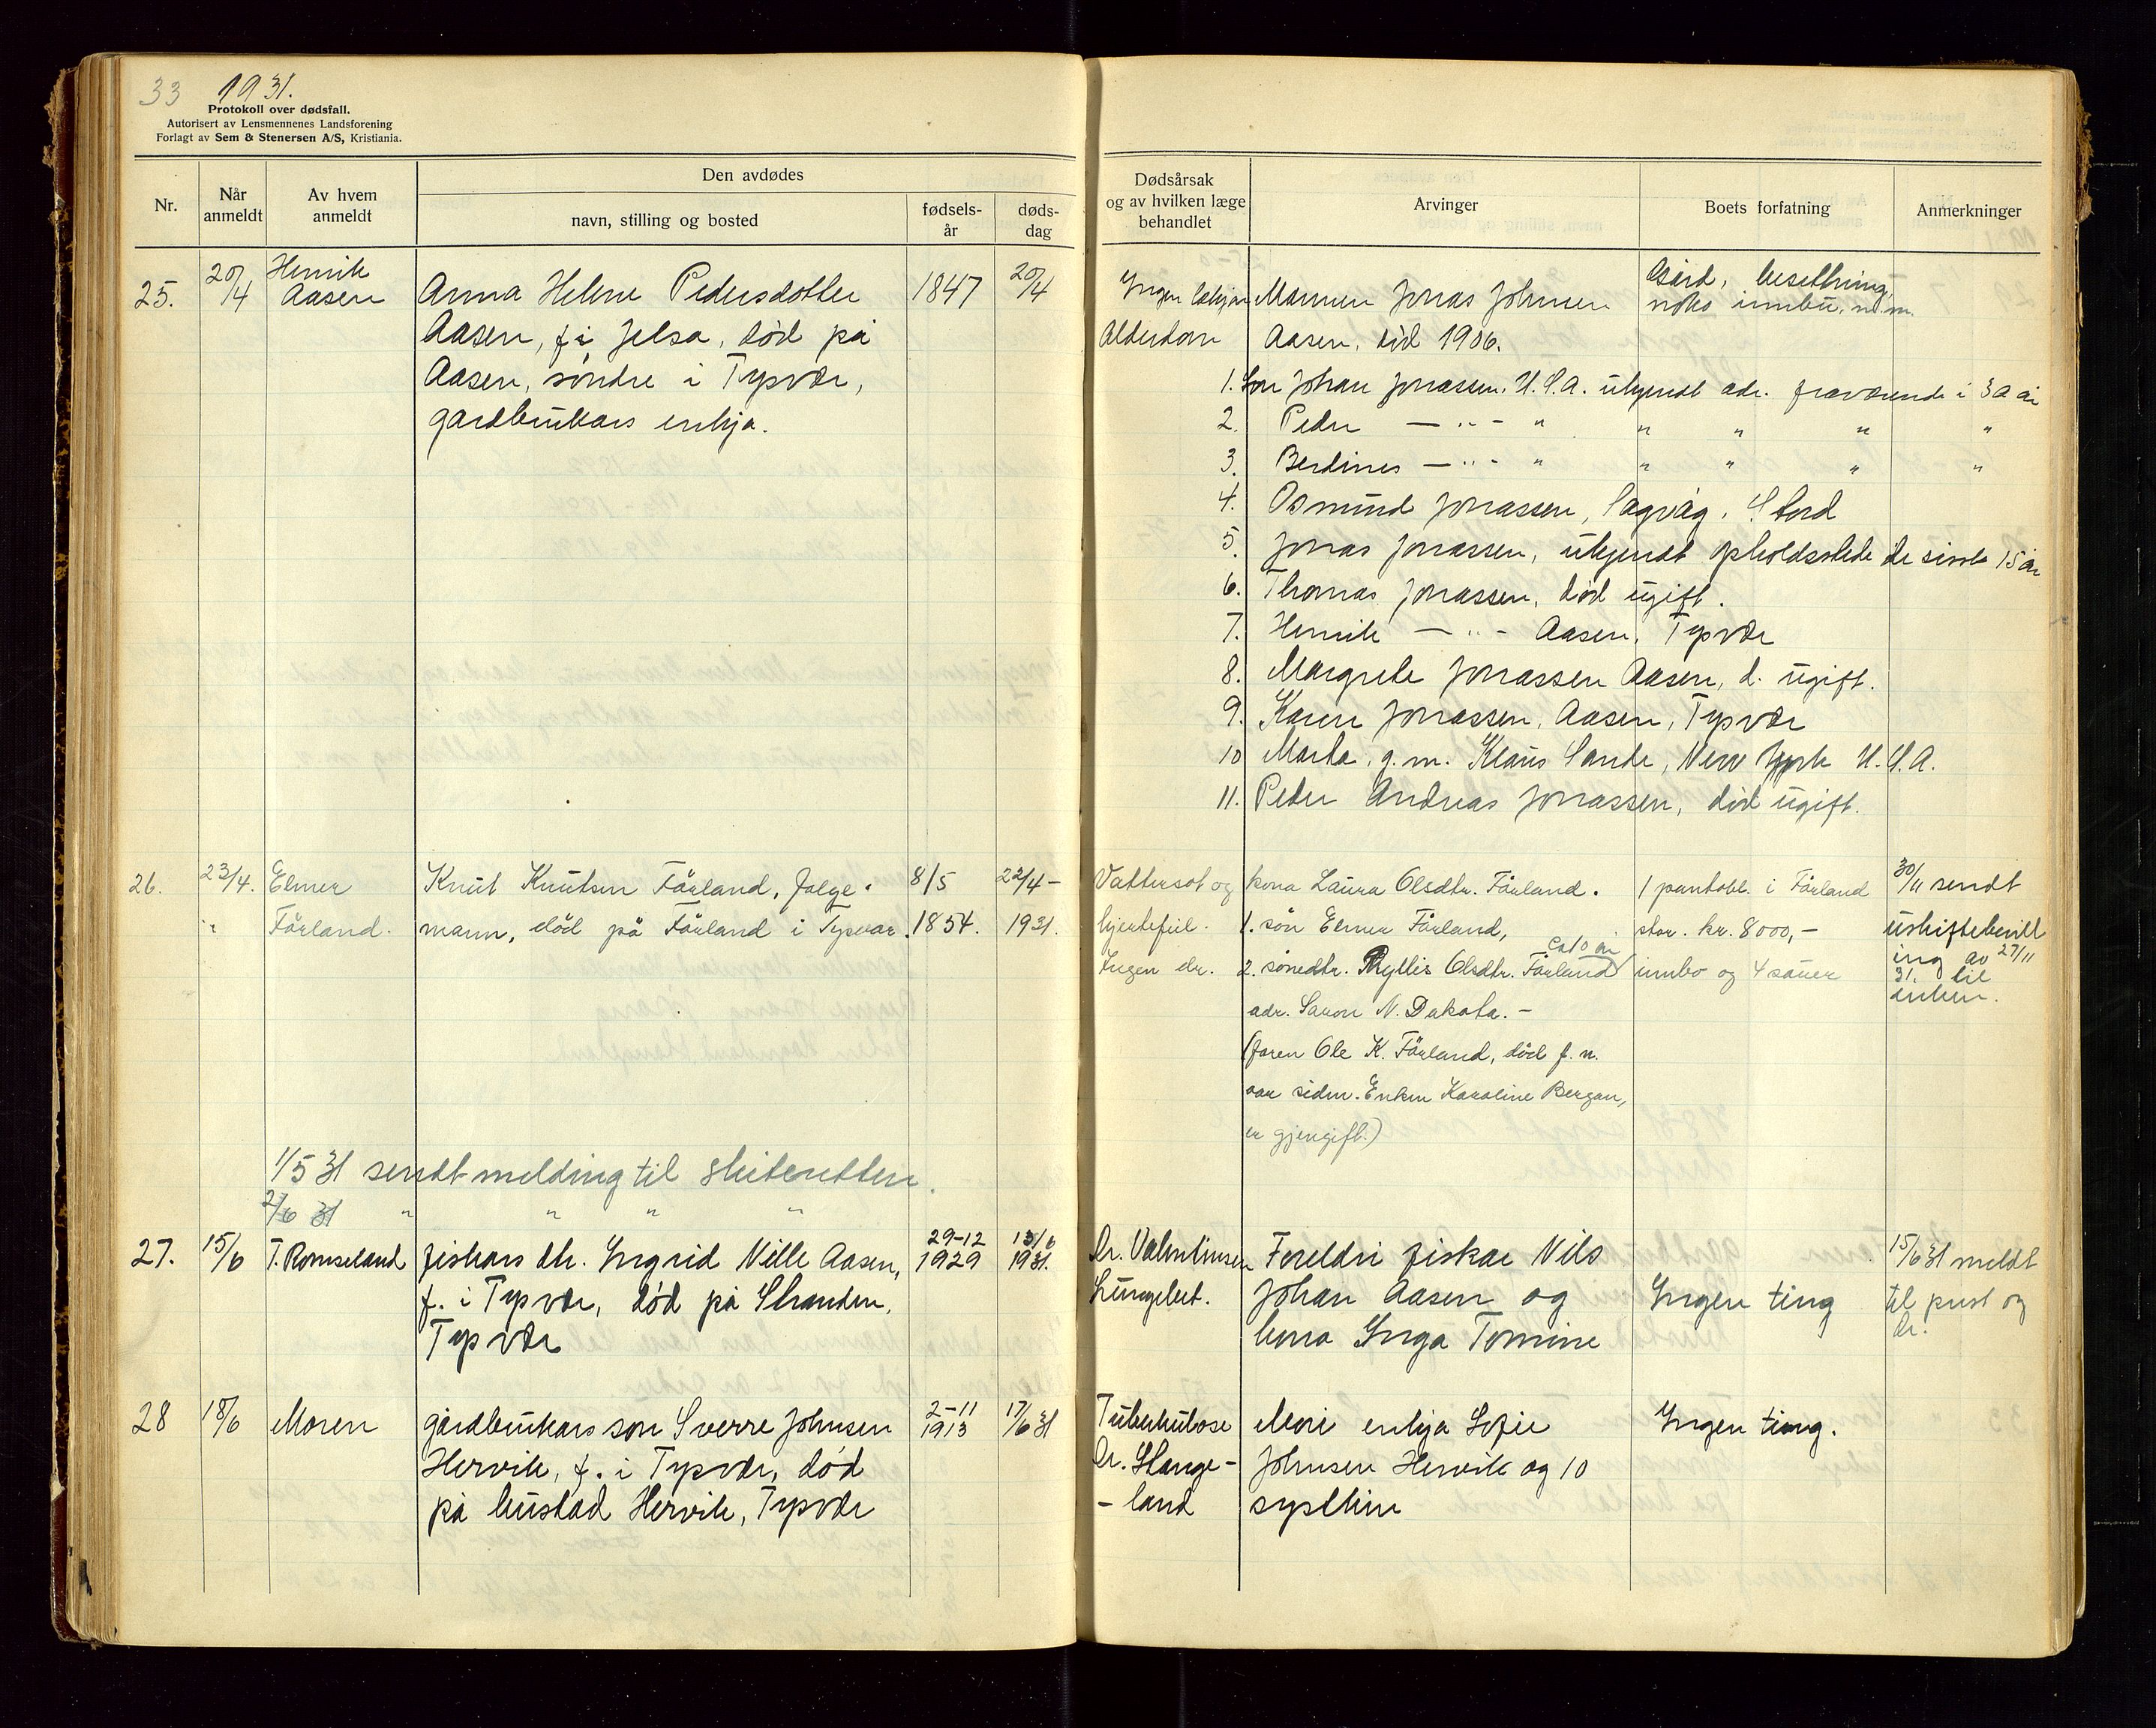 33 1931.
Protokoll over dødsfall.
Autorisert av Lensmennenes Landsforening
Forlagt av Sem & Stenersen A/S, Kristiania.
Nr.
Når anmeldt
Av hvem anmeldt
Den avdødes
navn, stilling og bosted
fødsels-år
døds-dag
Dødsårsak og av hvilken læge behandlet
Arvinger
Boets forfatning
Anmerkninger
25. 20/4 Henrik Aasen
Anna Helene Pedersdotter 1847 20/4
Aasen, f. i Jelsa, død på
Aasen, søndre i Tysvær,
gardbrukars enkja.
Ingen lækjar
Alderdom
Mannen Jonas Johnsen
Aasen, død 1906.
Gård, besettning,
noko innbu, m.m.
1. Son Johan Jonassen, U.S.A. ukjendt adr. fraværende i 30 år
2. Peder — " - " " " " "
3. Berdines — " - " " " " "
4. Osmund Jonassen, Sagvåg, Stord
5. Jonas Jonassen, ukjendt opholdsstede de siste 15 år
6. Thomas Jonassen, død ugift.
7. Henrik — " - Aasen, Tysvær
8. Margrete Jonassen Aasen, d. ugift.
9. Karen Jonassen, Aasen, Tysvær
10 Marta, g.m. Klaus Sande, New York U.S.A.
11. Peder Andreas Jonassen, død ugift.
26. 23/4. Elmer
Førland.
Knut Knutsen Førland, folge- 8/5 22/4-
mann, død på Førland i Tysvær. 1854. 1931.
Vattersot og
hjertefeil.
Ingen dr.
kona Laura Olsdtr. Førland.
1. søn Elmer Førland,
ca 10 år
2. sønedtr. Phyllis Olsdtr. Førland
adr. N. Dakota. -
(faren Ole K. Førland, død f. n.
aar siden. Enken Karoline Bergan,
er gjengift.)
1 pantobl. i Førland
stor. kr. 8000,-
innbo og 4 sauer
30/11 sendt
uskiftebevill
ing av 27/11
31. til
enken.
1/5 31 sendt melding til skifteretten.
27/6 31 " " " "
27. 15/6 T. Romseland
fiskars dtr. Ingrid Nille Aasen, 29-12 1929 13/6 1931.
f. i Tysvær, død på Stranden,
Tysvær
Dr. Valentinsen
Lungebet.
Foreldri fiskar Nils
Johan Aasen og
kona Inga Tomine
Ingen ting
15/6 31 meldt
til prest og
dr.
28 18/6 Moren
gardbrukars son Sverre Johnsen 2-11 1913 17/6 31
Hervik, f. i Tysvær, død
på bustad Hervik, Tysvær
Tuberkulose
Dr. Stange-
- land
Mori enkja Sofie
Johnsen Hervik og 10
syskin
Ingen ting.